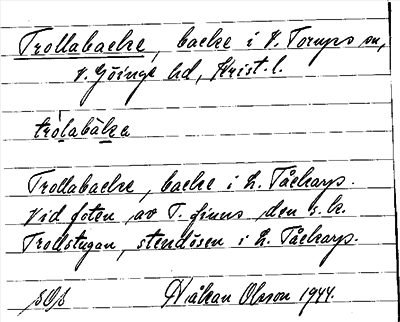 Trollabacke, backe i V. Torups sn,
V. Göinge hd, Krist. l.
trolabáka
Trollabacke, backe i L. Tåckarp.
Vid foten av T. finns den s. k.
Trollstugan, stendösen i L. Tåckarp.
Håkan Olsson 1944.